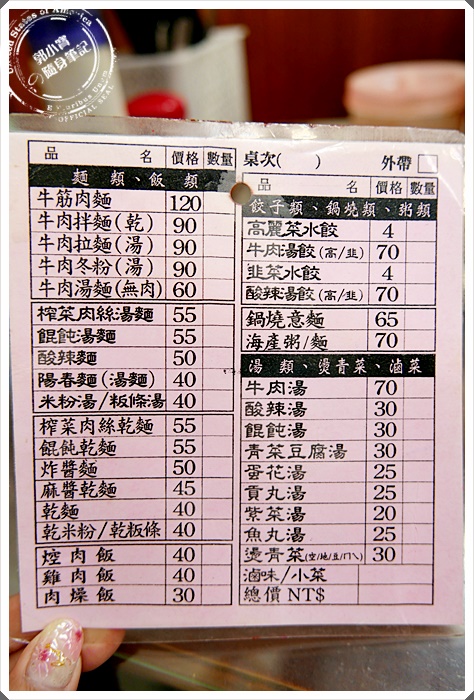 United States of America
郭小寶
の隨身筆記
E Pluribus Unum
OFFICIAL SEAL
品 名 價格 數量
麵 類、飯 類
牛筋肉麵 120
牛肉拌麵(乾) 90
牛肉拉麵(湯) 90
牛肉冬粉(湯) 90
牛肉湯麵(無肉) 60
榨菜肉絲湯麵 55
餛飩湯麵 55
酸辣麵 50
陽春麵(湯麵) 40
米粉湯/粄條湯 40
榨菜肉絲乾麵 55
餛飩乾麵 55
炸醬麵 50
麻醬乾麵 45
乾麵 40
乾米粉/乾粄條 40
焢肉飯 40
雞肉飯 40
肉燥飯 30
桌次( ) 外帶
品 名 價格 數量
餃子類、鍋燒類、粥類
高麗菜水餃 4
牛肉湯餃(高/韭) 70
韭菜水餃 4
酸辣湯餃(高/韭) 70
鍋燒意麵 65
海產粥/麵 70
湯 類、燙青菜、滷菜
牛肉湯 70
酸辣湯 30
餛飩湯 30
青菜豆腐湯 30
蛋花湯 25
貢丸湯 25
紫菜湯 20
魚丸湯 25
燙青菜(空/地/豆/ㄇㄟ) 30
滷味/小菜
總價 NT$